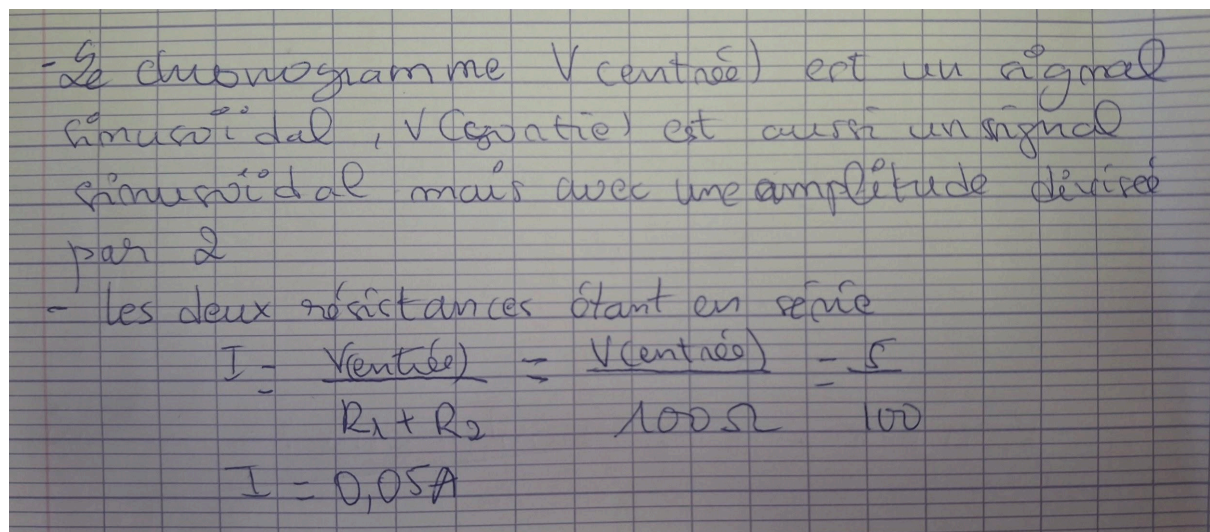 - Le chronogramme V(entrée) est un signal
sinusoïdal, V(sortie) est aussi un signal
sinusoïdal mais avec une amplitude divisée
par 2
- les deux résistances étant en série
I = V(entrée) / R1 + R2 = V(entrée) / 100 Ω = 5 / 100
I = 0,05A